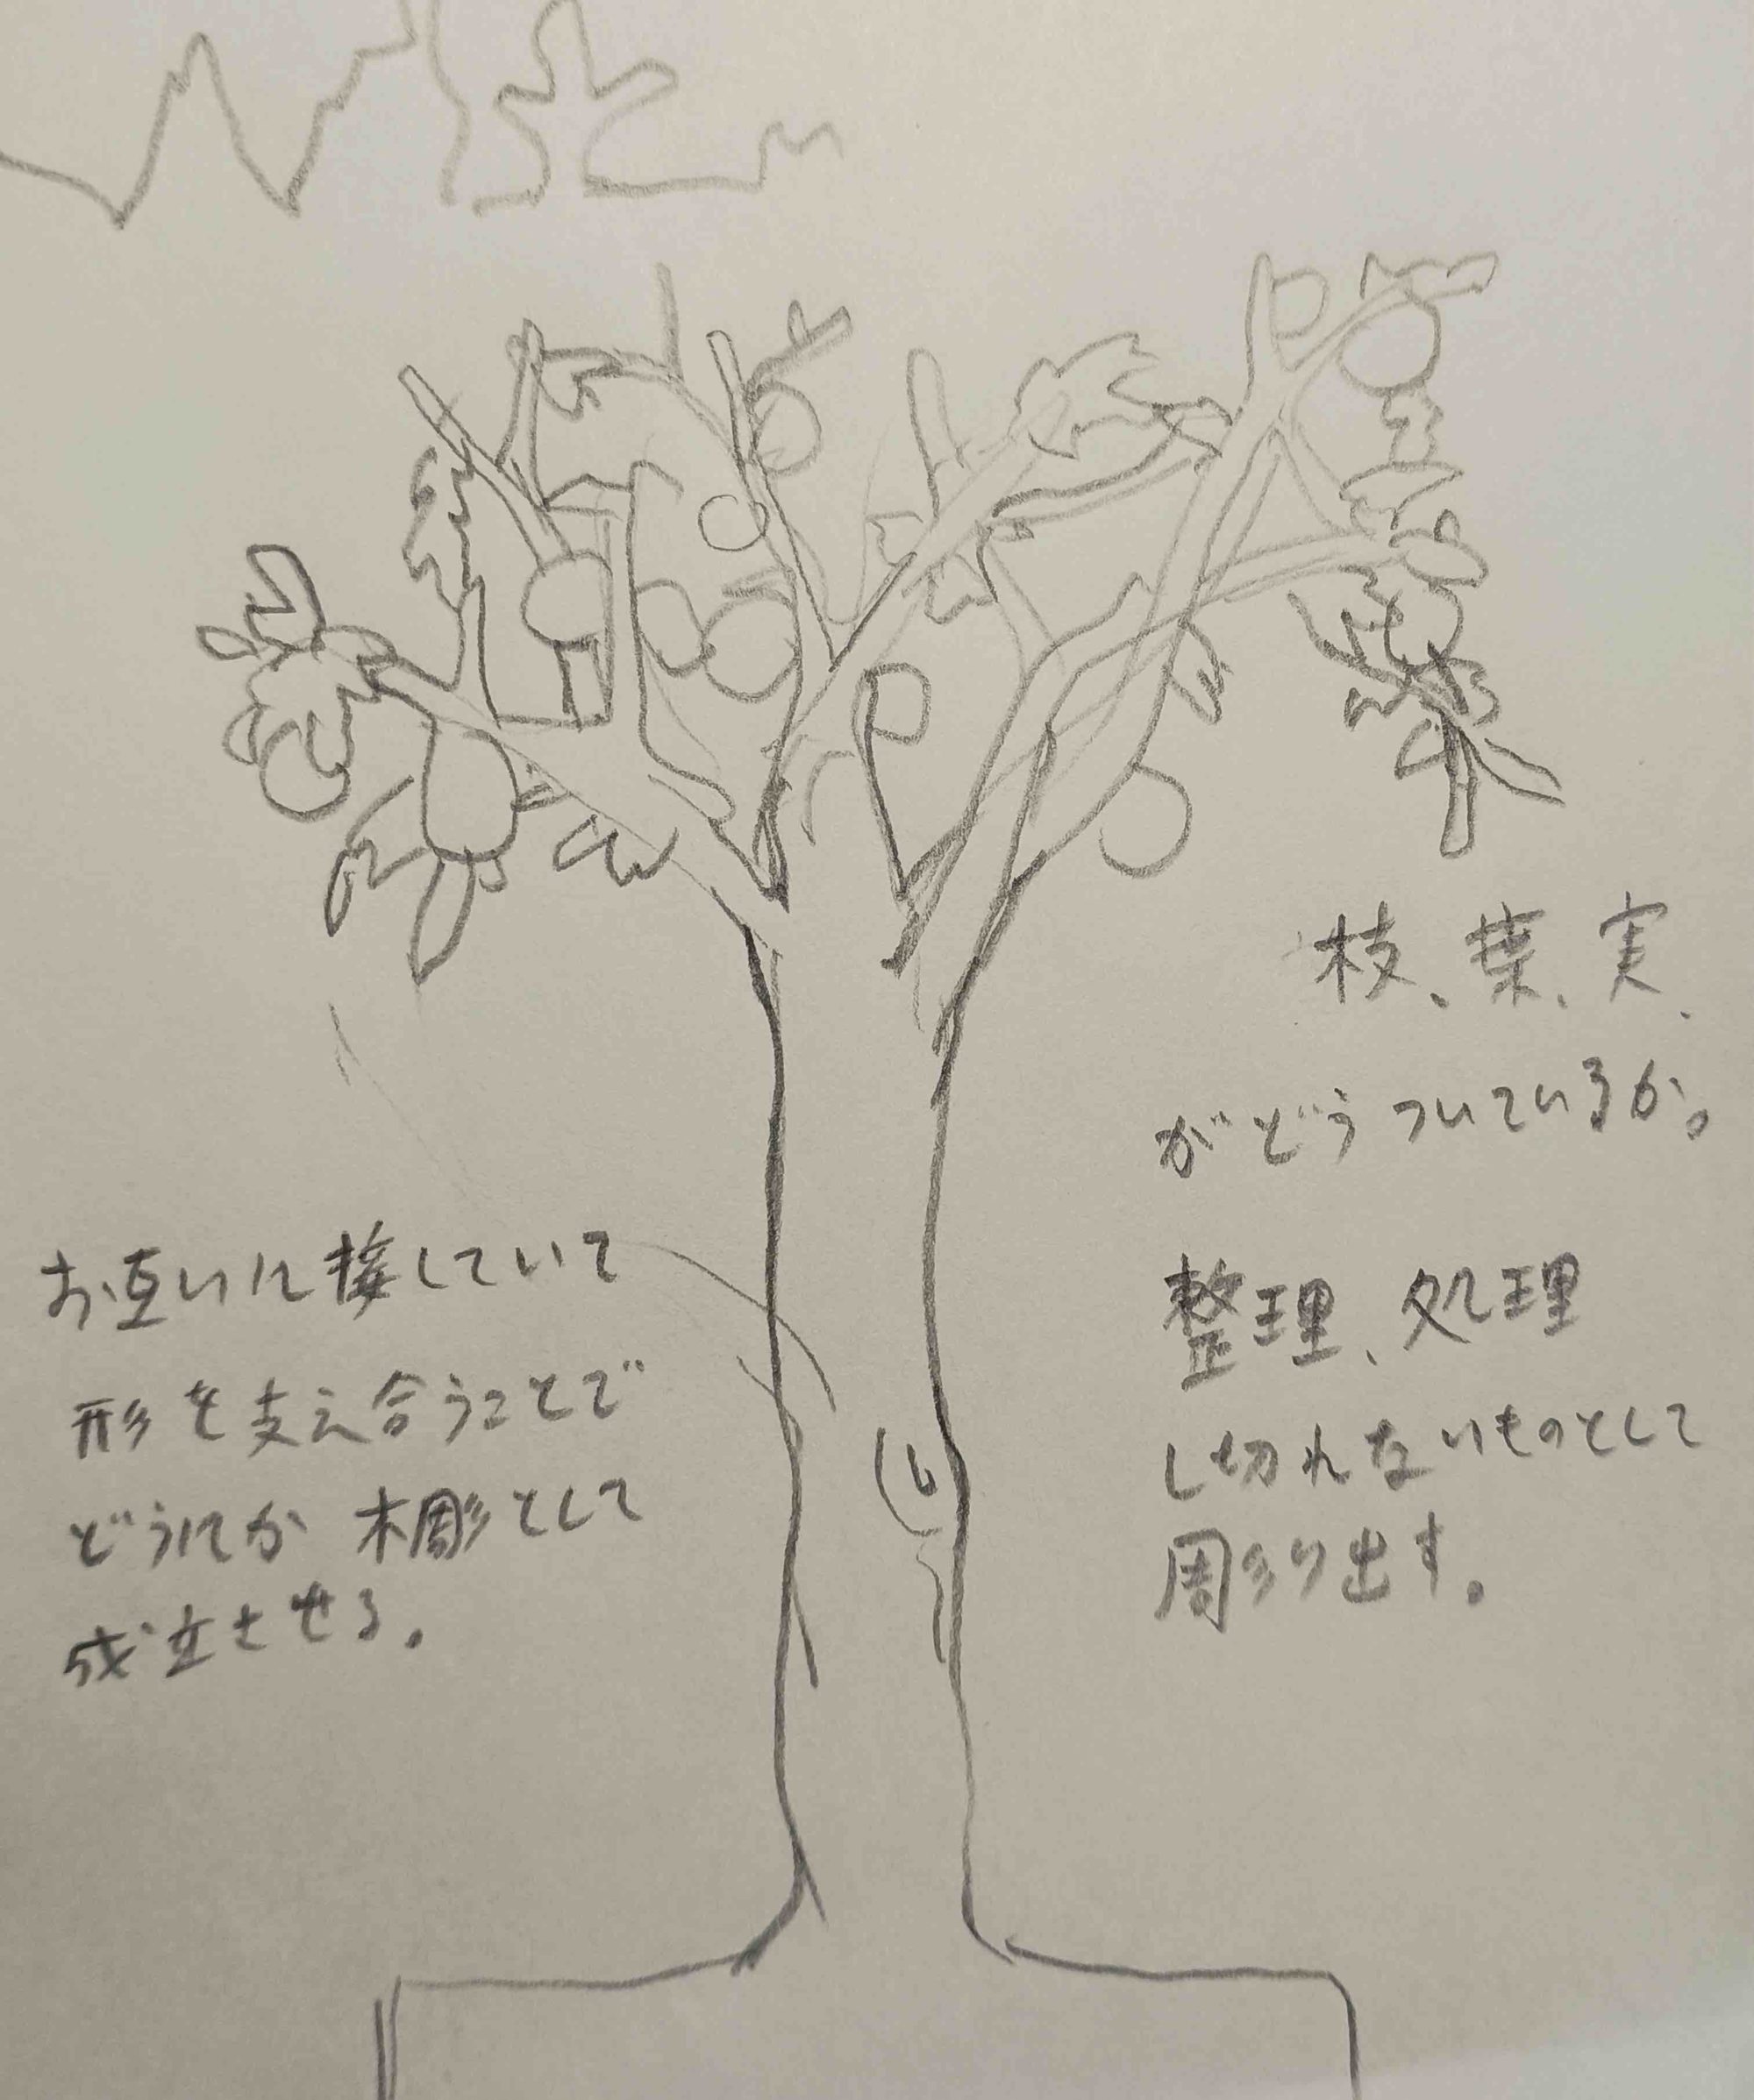 枝、葉、実、
がどうついているか。
整理、処理
し切れないものとして
彫り出す。
お互いに接していて
形を支え合うことで
どうにか木彫として
成立させる。